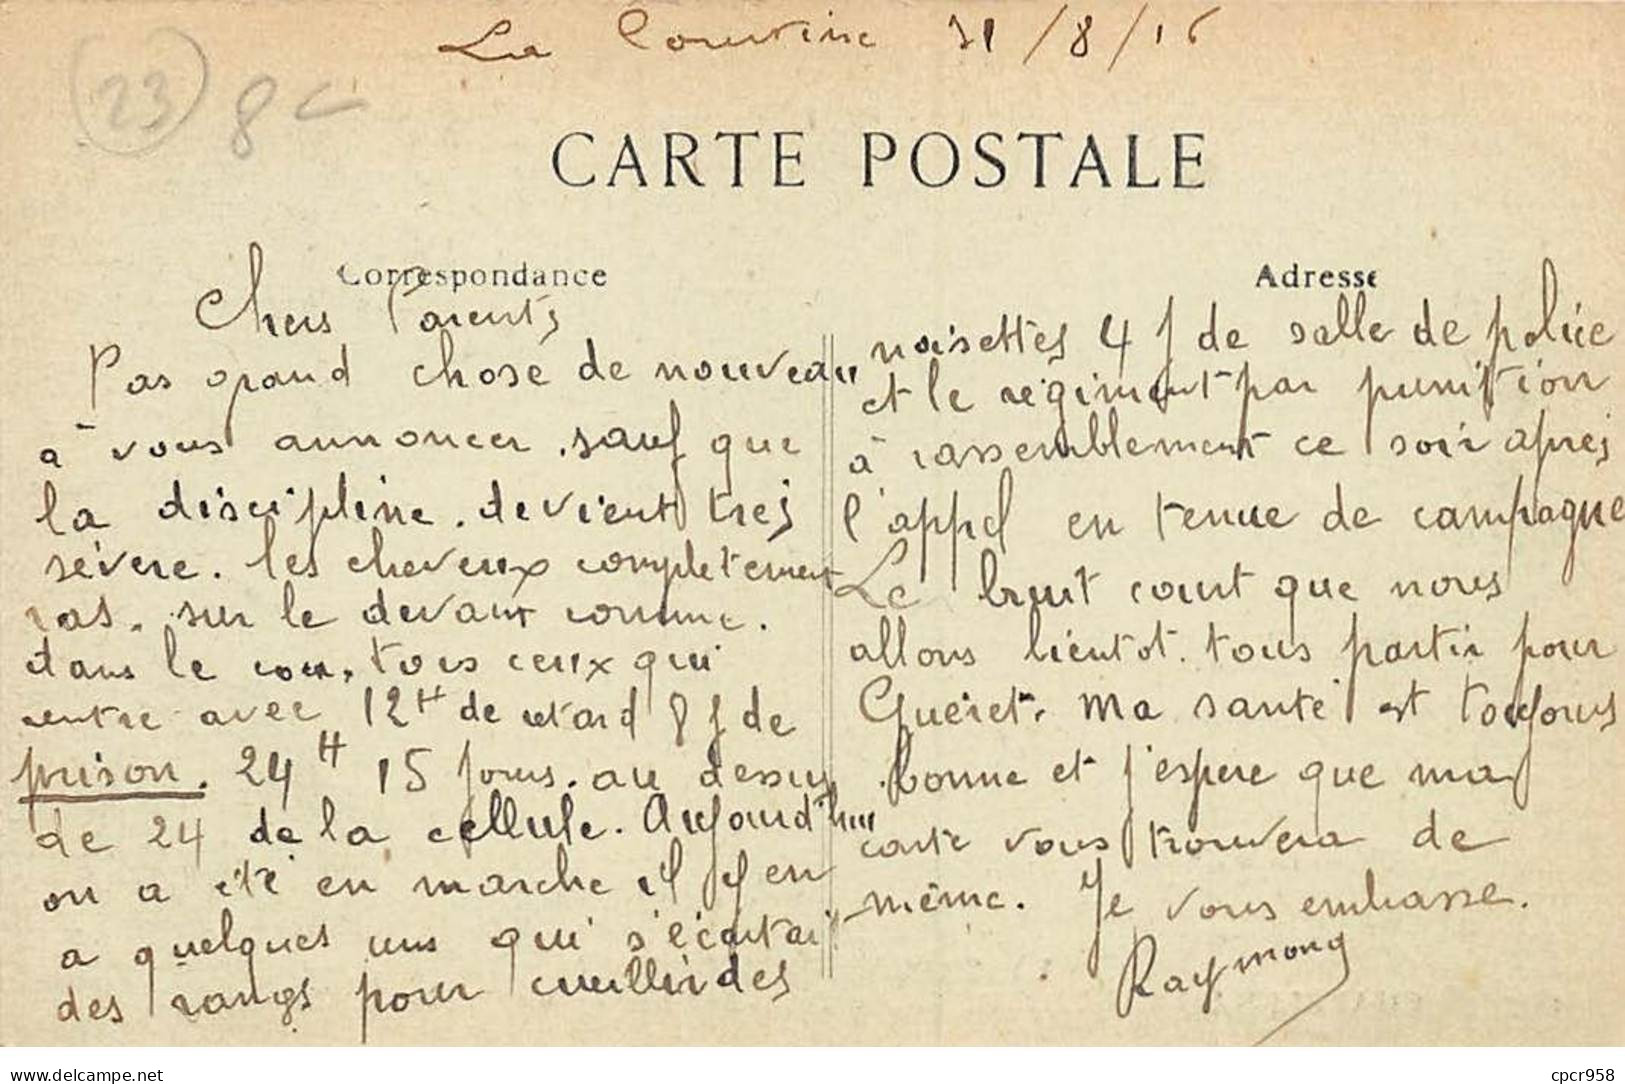 La Courtine 31/8/16
(23) 8€
CARTE POSTALE
Correspondance
Adresse
Chers Parents
Pas grand chose de nouveau
à vous annoncer, sauf que
la discipline. devient tres
sévère. les cheveux completement
ras. sur le devant comme.
dans le cou, tous ceux qui
rentre avec 12H de retard 8 j de
prison. 24H 15 jours. au dessus
de 24 de la cellule. Aujourd'hui
on a été en marche il y en
a quelques uns qui s'écartait
des rangs pour cueillir des
noisettes 4 j de salle de police
et le régiment par punition
à rassemblement ce soir apres
l'appel en tenue de campagne
Le bruit court que nous
allons bientot. tous partir pour
Guéret. Ma santé est toujours
bonne et j'espere que ma
carte vous trouvera de
même. Je vous embrasse.
Raymond
Louis le Hutin Delcampe.net
cpcr958